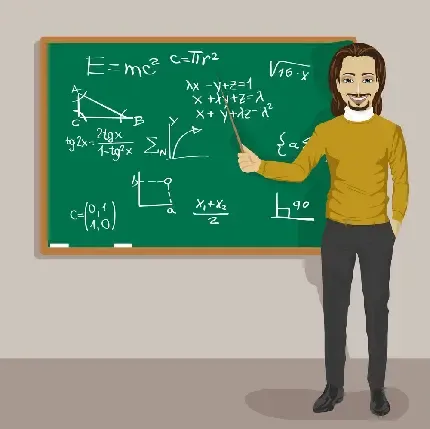 E=mc²
C=πr²
√16·x
λx-y+z=1
x+λy+z=λ
x+y+λz=λ²
A
C B
tg2x=2tgx/1-tg²x
Σ N
Y
X
{a≤
b
a
C=(0,1
1,0)
x₁+x₂
2
90